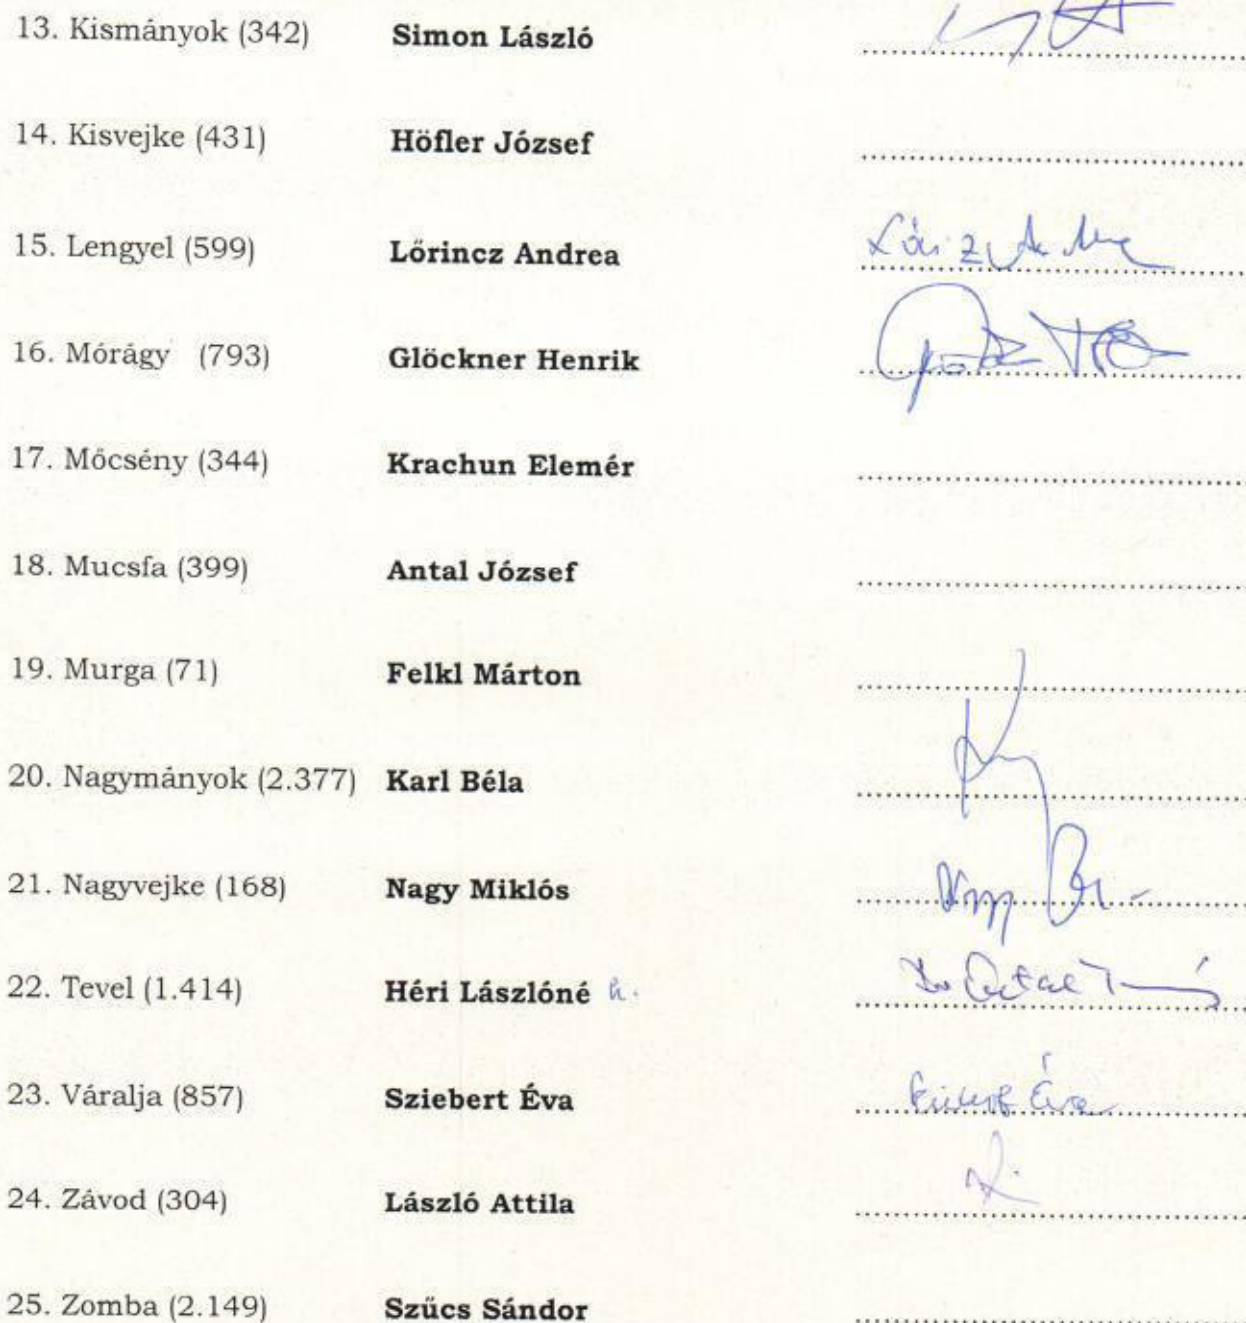 13. Kismányok (342) Simon László
14. Kisvejke (431) Höfler József
15. Lengyel (599) Lőrincz Andrea
16. Mórágy (793) Glöckner Henrik
17. Mőcsény (344) Krachun Elemér
18. Mucsfa (399) Antal József
19. Murga (71) Felkl Márton
20. Nagymányok (2.377) Karl Béla
21. Nagyvejke (168) Nagy Miklós
22. Tevel (1.414) Héri Lászlóné h.
23. Váralja (857) Sziebert Éva Éva
24. Závod (304) László Attila
25. Zomba (2.149) Szűcs Sándor